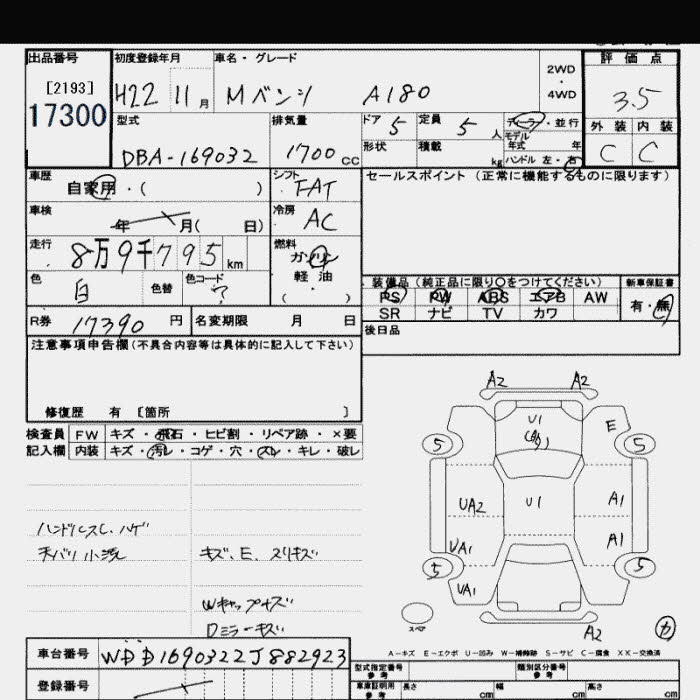 出品番号
[2193]
17300
初度登録年月
H22 11月
車名・グレード
Mベンツ A180
2WD
・
4WD
評価点
3.5
外装 内装
C C
型式
DBA-169032
排気量
1700 CC
ドア 5
定員 5 人
形状
積載 kg
ディーラー・並行
モデル
年式 年
ハンドル 左・右
車歴
自家用・( )
シフト
FAT
セールスポイント (正常に機能するものに限ります)
車検
年 月( 日)
冷房
AC
走行
8万9千795 km
燃料
ガソリン
軽油
( )
色
白
色替
色コード
?
装備品 (純正品に限り○をつけてください)
新車保証書
PS PW ABS エアB AW
有・無
SR ナビ TV カワ
R券 17390 円
名変期限 月 日
後日品
注意事項申告欄(不具合内容等は具体的に記入して下さい)
修復歴 有 〔箇所 〕
検査員
記入欄
FW キズ・飛石・ヒビ割・リペア跡・×要
内装 キズ・汚レ・コゲ・穴・スレ・キレ・破レ
A2 A2
U1
E
5 5
UA2 U1 A1
UA1 A1
5 5
UA1
A2
スペア
ハンドルスレ、ハゲ
天バリ小洗
キズ、E、スリキズ
Wキャップキズ
Dミラーキズ
A-キズ E-エクボ U-凹み W-補修跡 S-サビ C-腐食 XX-交換済
車台番号 WDD1690322J882923
登録番号
型式指定番号
参考
類別区分番号
参考
車庫証明用
参考
長さ cm
幅 cm
高さ cm